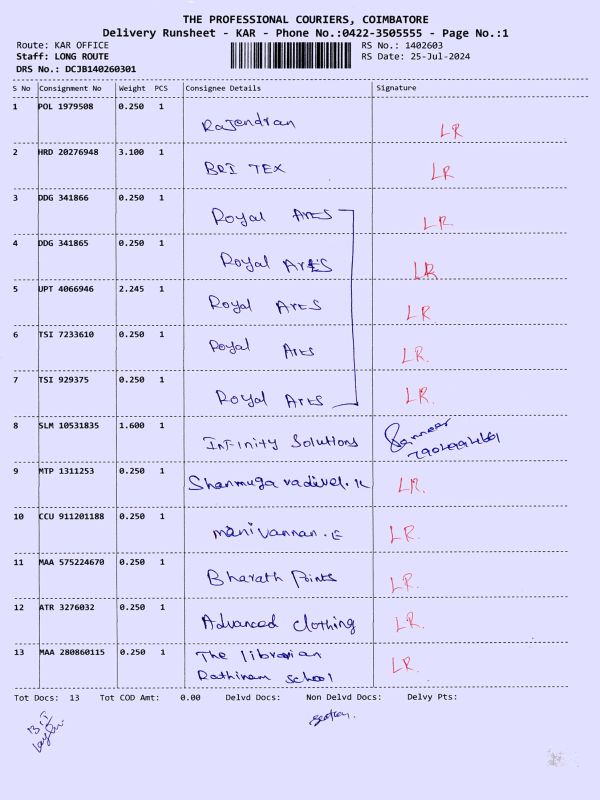 THE PROFESSIONAL COURIERS, COIMBATORE
Delivery Runsheet - KAR - Phone No.:0422-3505555 - Page No.:1
Route: KAR OFFICE RS No.: 1402603
Staff: LONG ROUTE RS Date: 25-Jul-2024
DRS No.: DCJB140260301
S No Consignment No Weight PCS Consignee Details Signature
1 POL 1979508 0.250 1 Rajendran LR
2 HRD 20276948 3.100 1 BRI TEX LR
3 DDG 341866 0.250 1 Royal Arts LR
4 DDG 341865 0.250 1 Royal Arts LR
5 UPT 4066946 2.245 1 Royal Arts LR
6 TSI 7233610 0.250 1 Royal Arts LR.
7 TSI 929375 0.250 1 Royal Arts LR.
8 SLM 10531835 1.600 1 Infinity Solutions
9 MTP 1311253 0.250 1 Shanmuga vadivel. K LR.
10 CCU 911201188 0.250 1 manivannan. E LR.
11 MAA 575224670 0.250 1 Bharath Prints LR.
12 ATR 3276032 0.250 1 Advanced clothing LR.
13 MAA 280860115 0.250 1 The librarian LR.
Rathinam school
Tot Docs: 13 Tot COD Amt: 0.00 Delvd Docs: Non Delvd Docs: Delvy Pts: